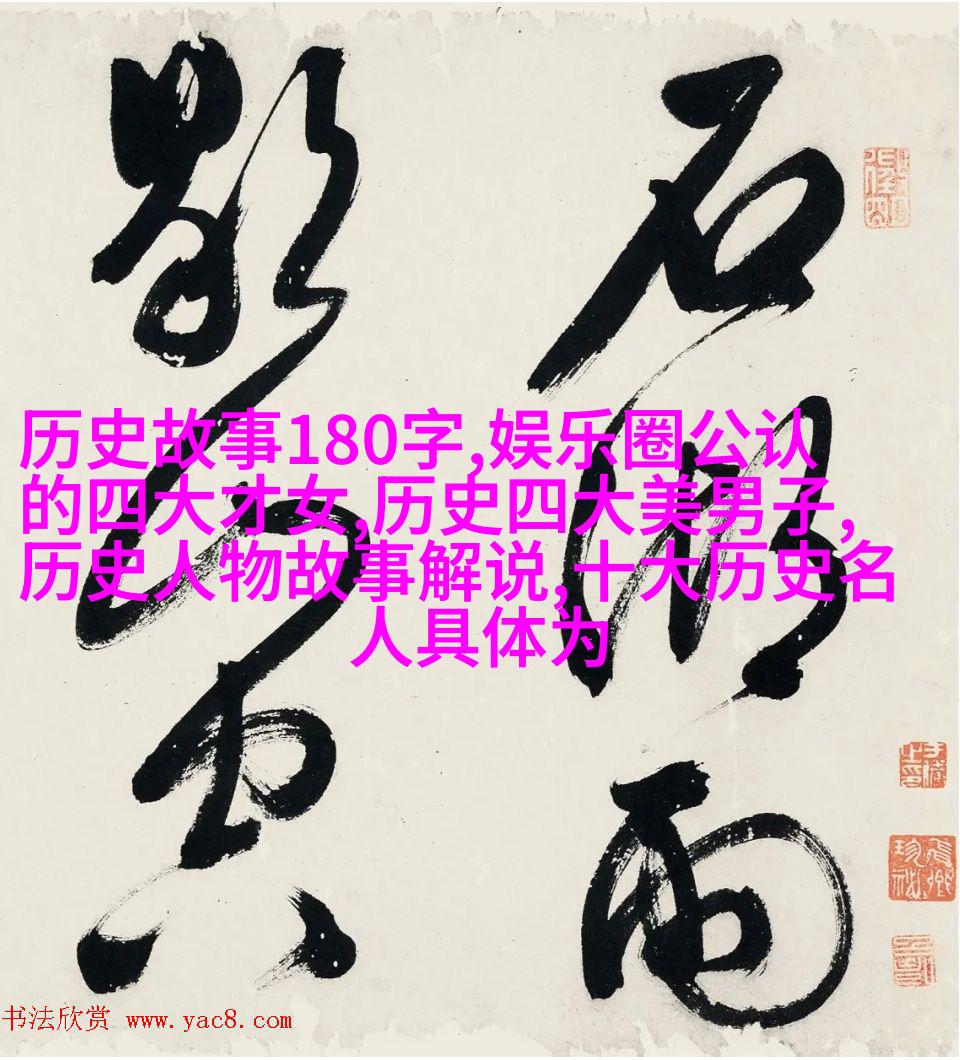 石湖雨
歇山空
历史故事180字,娱乐圈公认
的四大才女,历史四大美男子,
历史人物故事解说,十大历史名
人具体为
书法欣赏 www.yac8.com